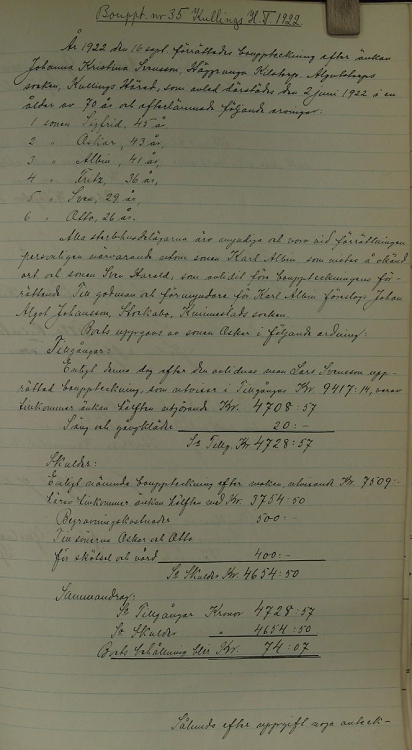 Bouppt. nr 35 Kullings H. T. 1922
År 1922 den 16 sept. förrättades bouppteckning efter änkan
Johanna Kristina Svensson, Algutstorps
socken, Kullings Härad, som avled därstädes den 2 juni 1922 i en
ålder av 70 år och efterlämnade följande arvingar:
1 sonen Sigfrid, 45 år,
2 " Oskar, 43 år,
3 " Albin, 41 år,
4 " Fritz, 36 år,
5 " Sven, 29 år,
6 " Otto, 26 år.
Alla sterbhusdelägarna äro myndiga och voro vid förrättningen
personligen närvarande utom sonen Karl Albin som vistas å okänd
ort och sonen Sven Harald, som avlidit före bouppteckningens för-
rättande. Till godman och förmyndare för Karl Albin föreslogs Johan
Algot Johansson, Kvinnestads socken.
Boets uppgavs av sonen Oskar i följande ordning:
Tillgångar:
Enligt denna dag efter den avlidnes man Lars Svensson upp-
rättad bouppteckning, som utvisar i Tillgångar Kr. 9417:14, varav
tillkommer änkan hälften utgörande Kr. 4708:57
Säng och gångkläder 20:-
Sa Tillg. Kr 4728:57
Skulder:
Enligt nämnda bouppteckning efter maken, utvisande Kr. 7509:-
härav tillkommer änkan hälften med Kr. 3754:50
Begravningskostnader 500:-
Till sönerna Oskar och Otto
för skötsel och vård 400:-
Sa Skulder Kr. 4654:50
Sammandrag:
Sa Tillgångar Kronor 4728:57
Sa Skulder " 4654:50
Boets behållning blir Kr. 74:07
Sålunda efter uppgift noga anteck-